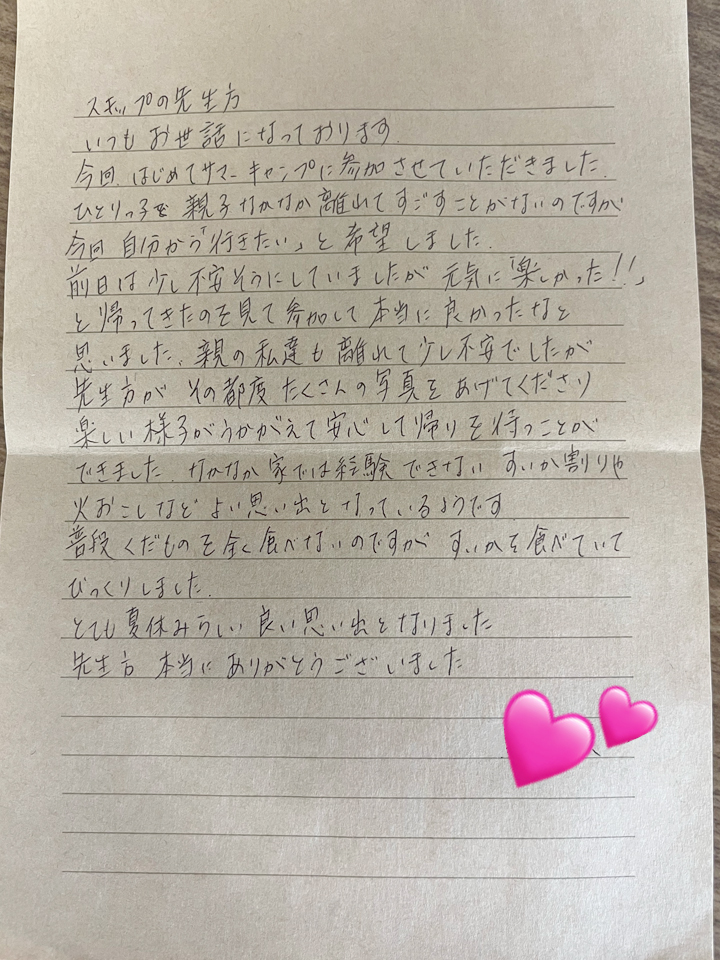 スキップの先生方
いつもお世話になっております.
今回.はじめてサマーキャンプに参加させていただきました.
ひとりっ子で 親子なかなか離れてすごすことがないのですが
今回 自分から「行きたい」と希望しました.
前日は少し不安そうにしていましたが 元気に「楽しかった!!」
と帰ってきたのを見て参加して本当に良かったなと
思いました.親の私達も離れて少し不安でしたが
先生方が その都度たくさんの写真をあげてくださり
楽しい様子がうかがえて安心して帰りを待つことが
できました.なかなか家では経験できない すいか割りや
火おこしなど よい思い出となっているようです
普段くだものを全く食べないのですが すいかを食べていて
びっくりしました.
とても夏休みらしい良い思い出となりました
先生方 本当にありがとうございました